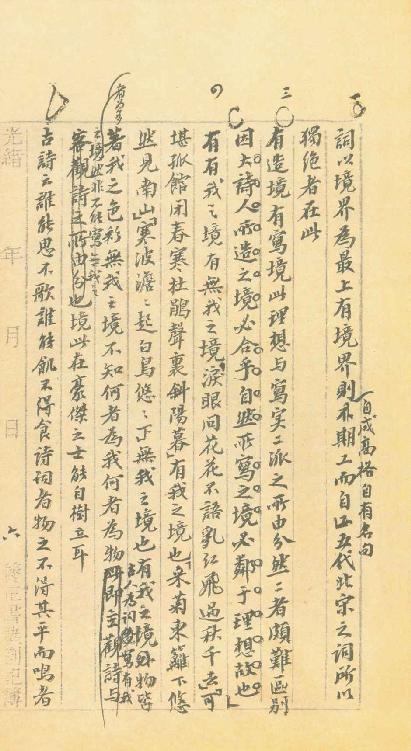 詞以境界為最上有境界則不期工而自工五代北宋之詞所以
自成高格自有名句
獨絕者在此
三
有造境有寫境此理想与寫实二派之所由分然二者頗難區別
因大詩人所造之境必合乎自然所寫之境必鄰于理想故也
有有我之境有無我之境淚眼问花花不語乱紅飛過秋千去可
堪孤館閉春寒杜鵑聲裏斜陽暮有我之境也采菊東籬下悠
然見南山寒波澹〻起白鳥悠〻下無我之境也有我之境外物皆
著我之色彩無我之境不知何者為我何者為物此即主觀詩与
古人為詞寫有我
之境
者為多
然非不能寫無我之
客觀詩之所由分也境此在豪傑之士能自樹立耳
古詩云誰能思不歌誰能飢不得食詩詞者物之不得其平而鳴者
光緒 年 月 日 六